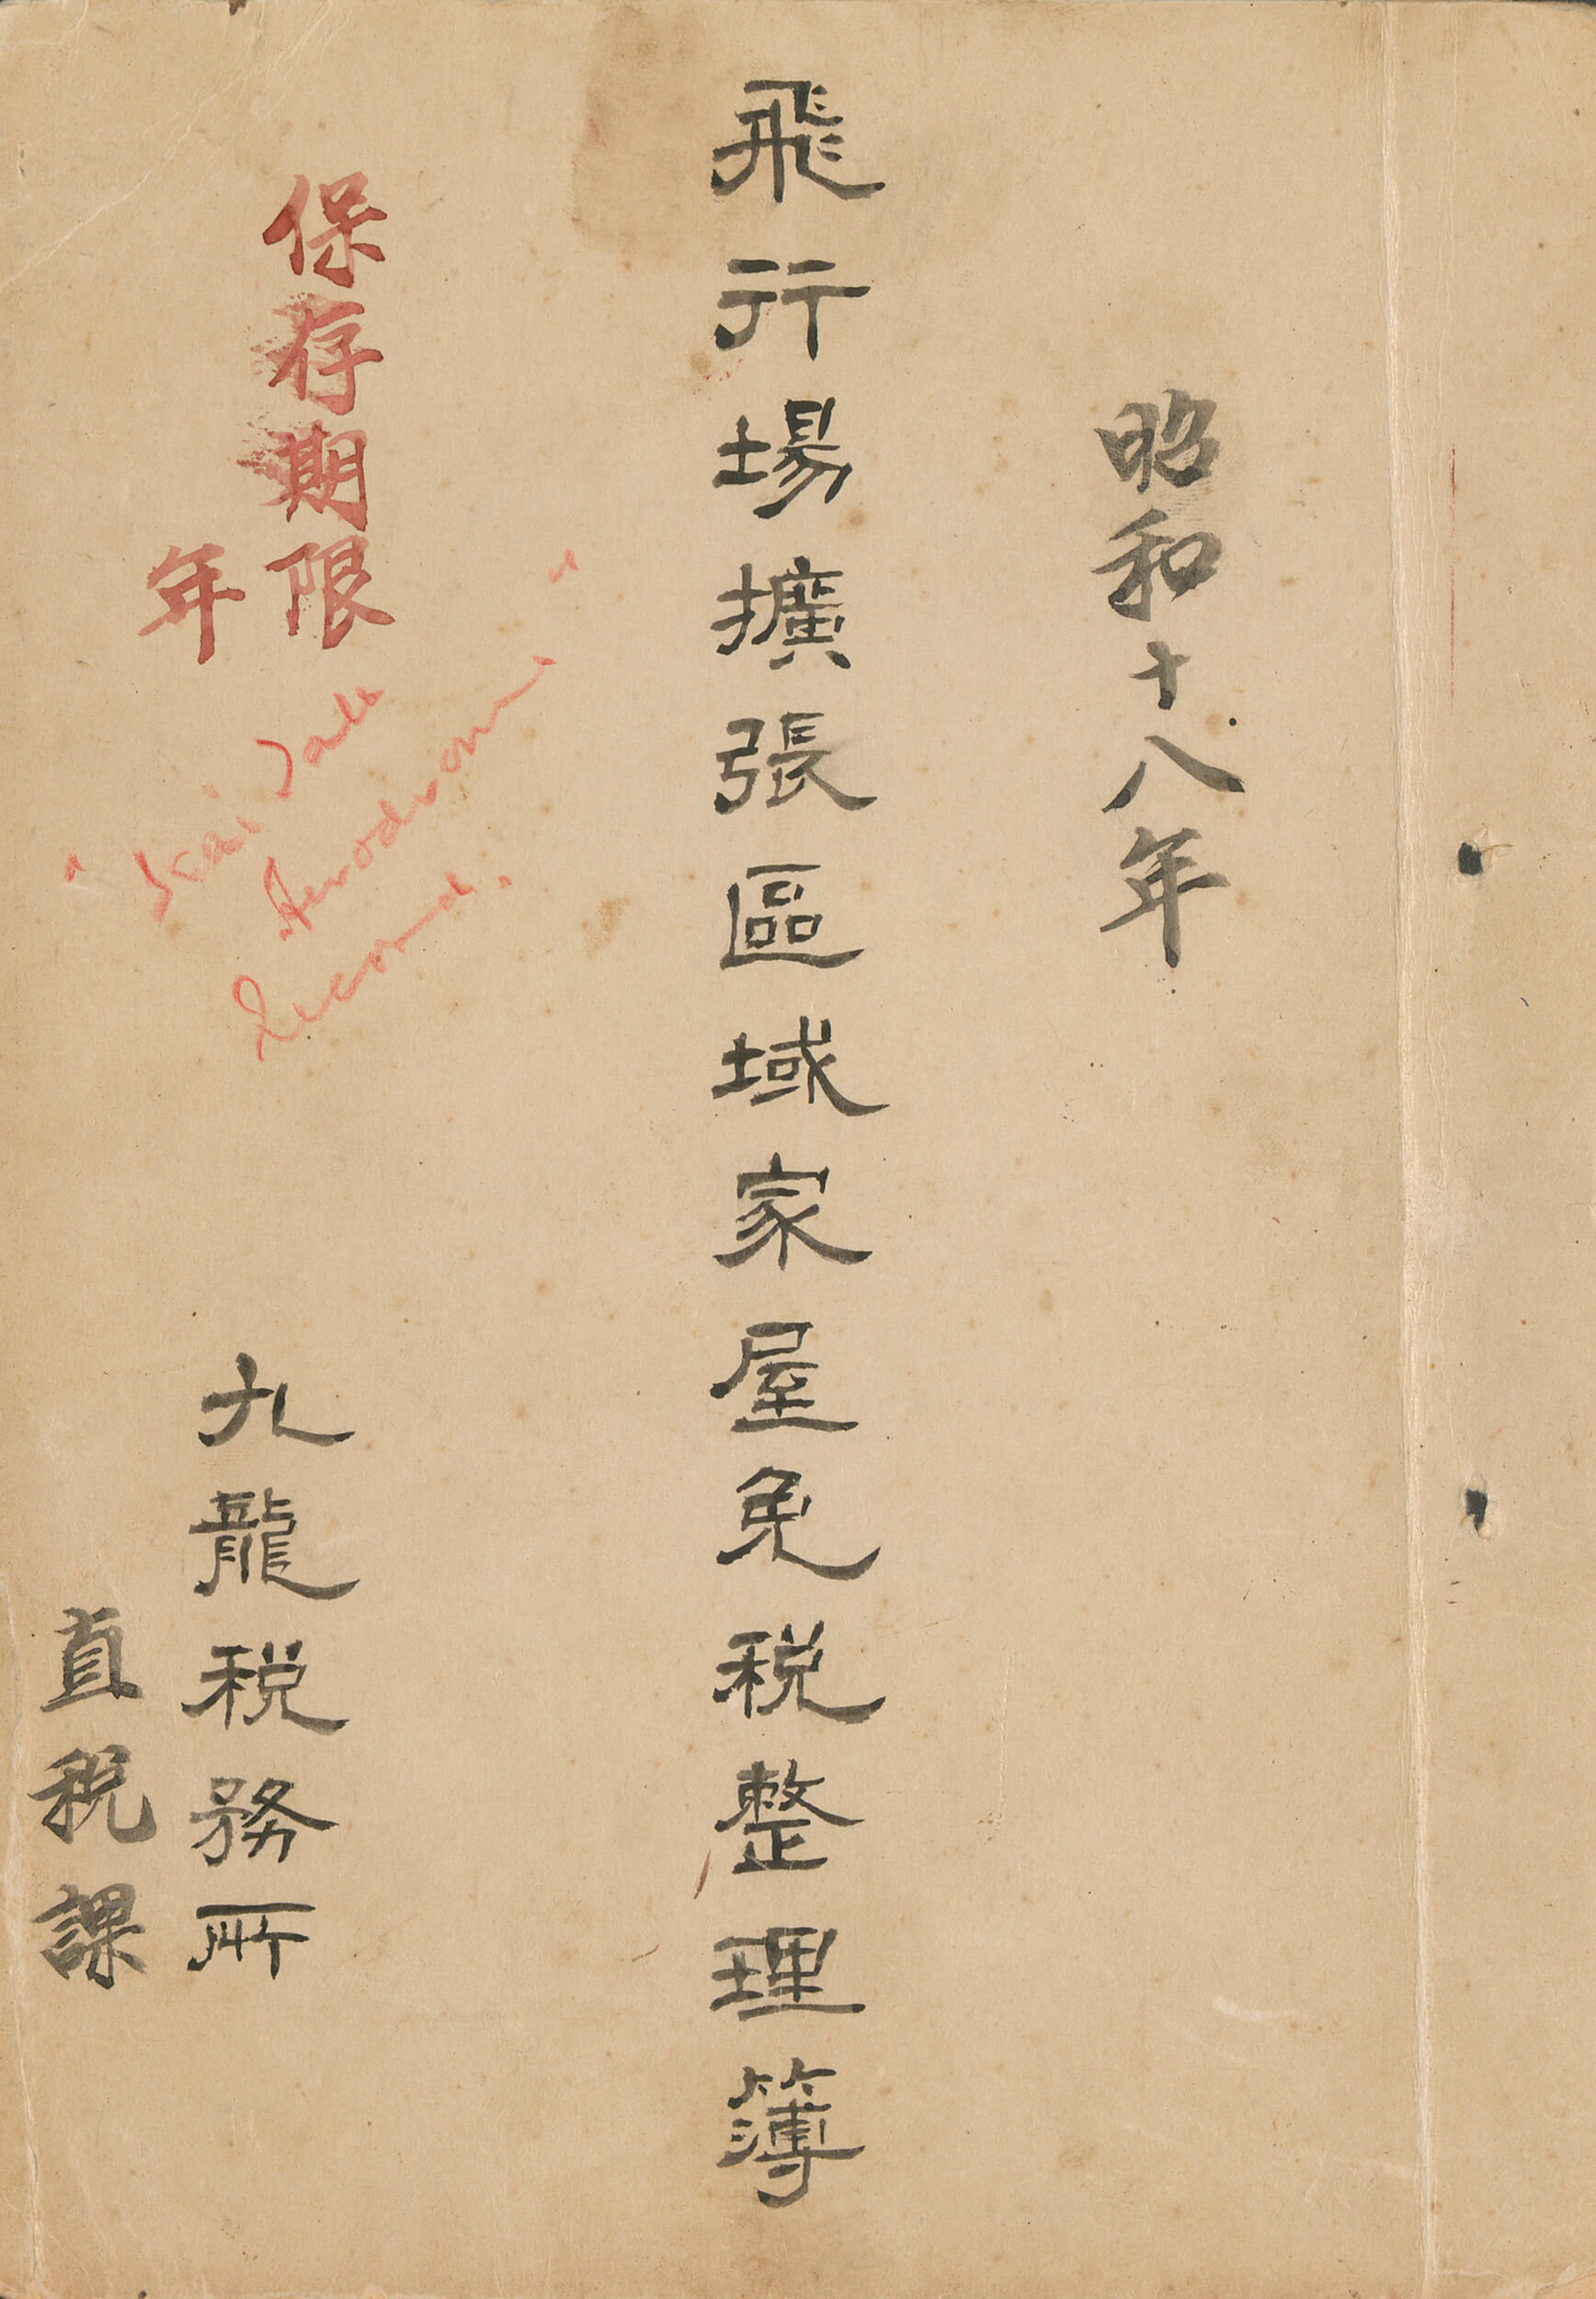 昭和十八年
飛行場擴張區域家屋免税整理簿
保存期限
年
"Kai Tak
Aerodrome"
Record.
九龍税務所
直税課